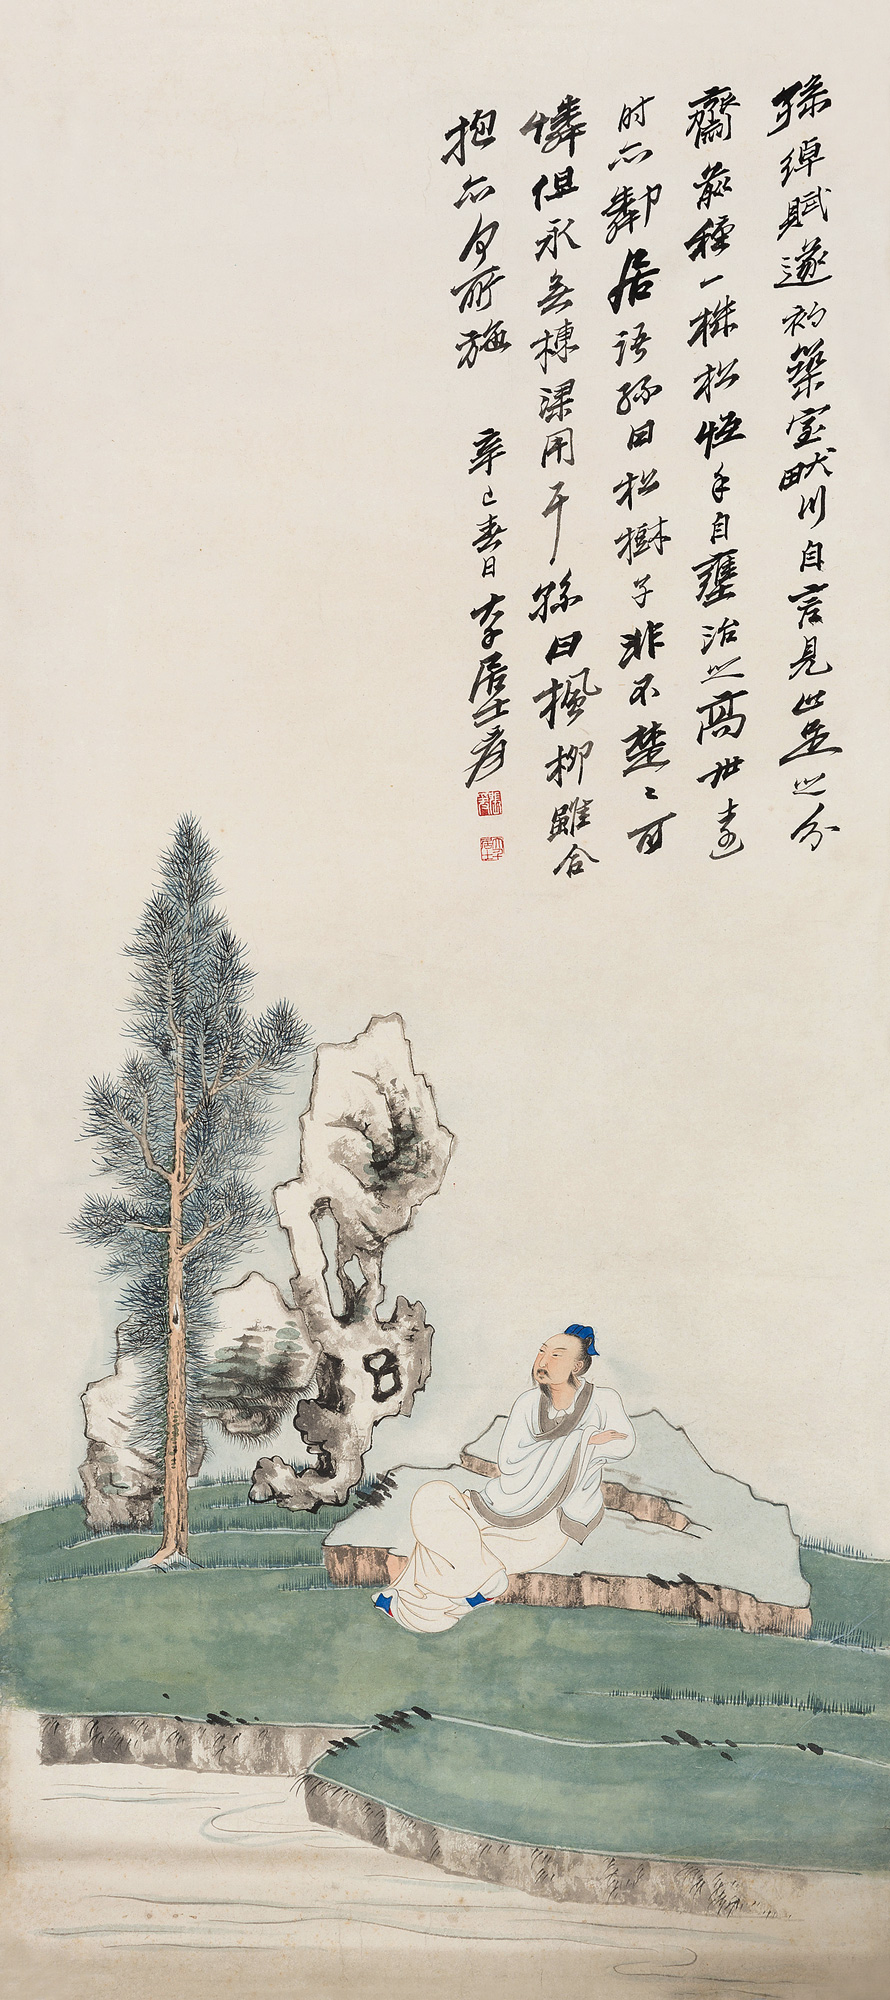 孫綽賦遂初築室畎川自言見止足之分
齋前種一株松恒手自壅治之高世遠
时亦鄰居語孫曰松樹子非不楚〻可
憐但永無棟梁用耳孫曰楓柳雖合
抱亦何所施
辛巳春日大千居士爰
張爰
大千居士